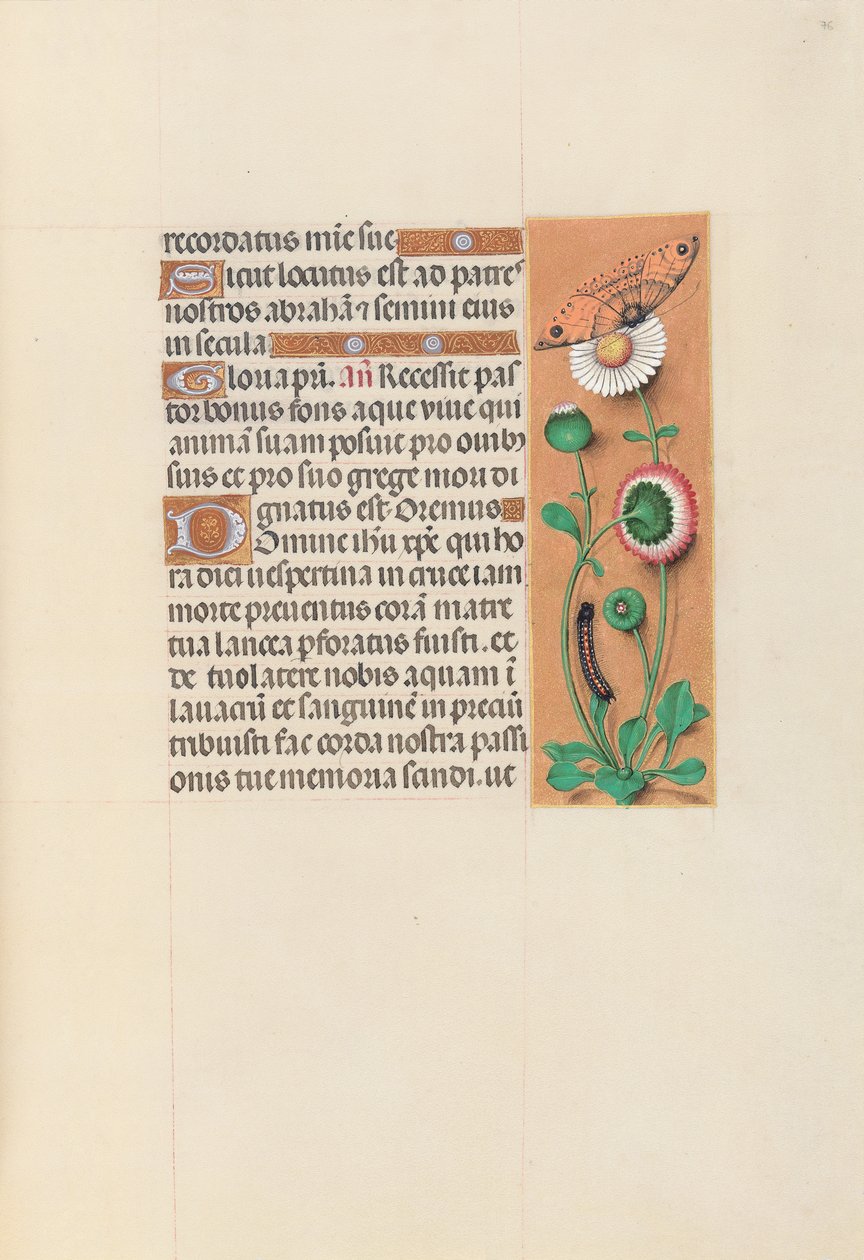 76
recordatus mīe sue
Sicut locutus est ad patres
nostros abrahā ⁊ semini eius
in secula
Gloria pri. Añ Recessit pas
tor bonus fons aque viue qui
animā suam posuit pro ouibꝫ
suis et pro suo grege mori di
gnatus est. Oremus
Domine ihū xpe qui ho
ra diei uespertina in cruce iam
morte preuentus corā matre
tua lancea pforatus fuisti. et
de tuo latere nobis aquam ī
lauacrū et sanguinē in preciū
tribuisti fac corda nostra passi
onis tue memoria scindi. ut